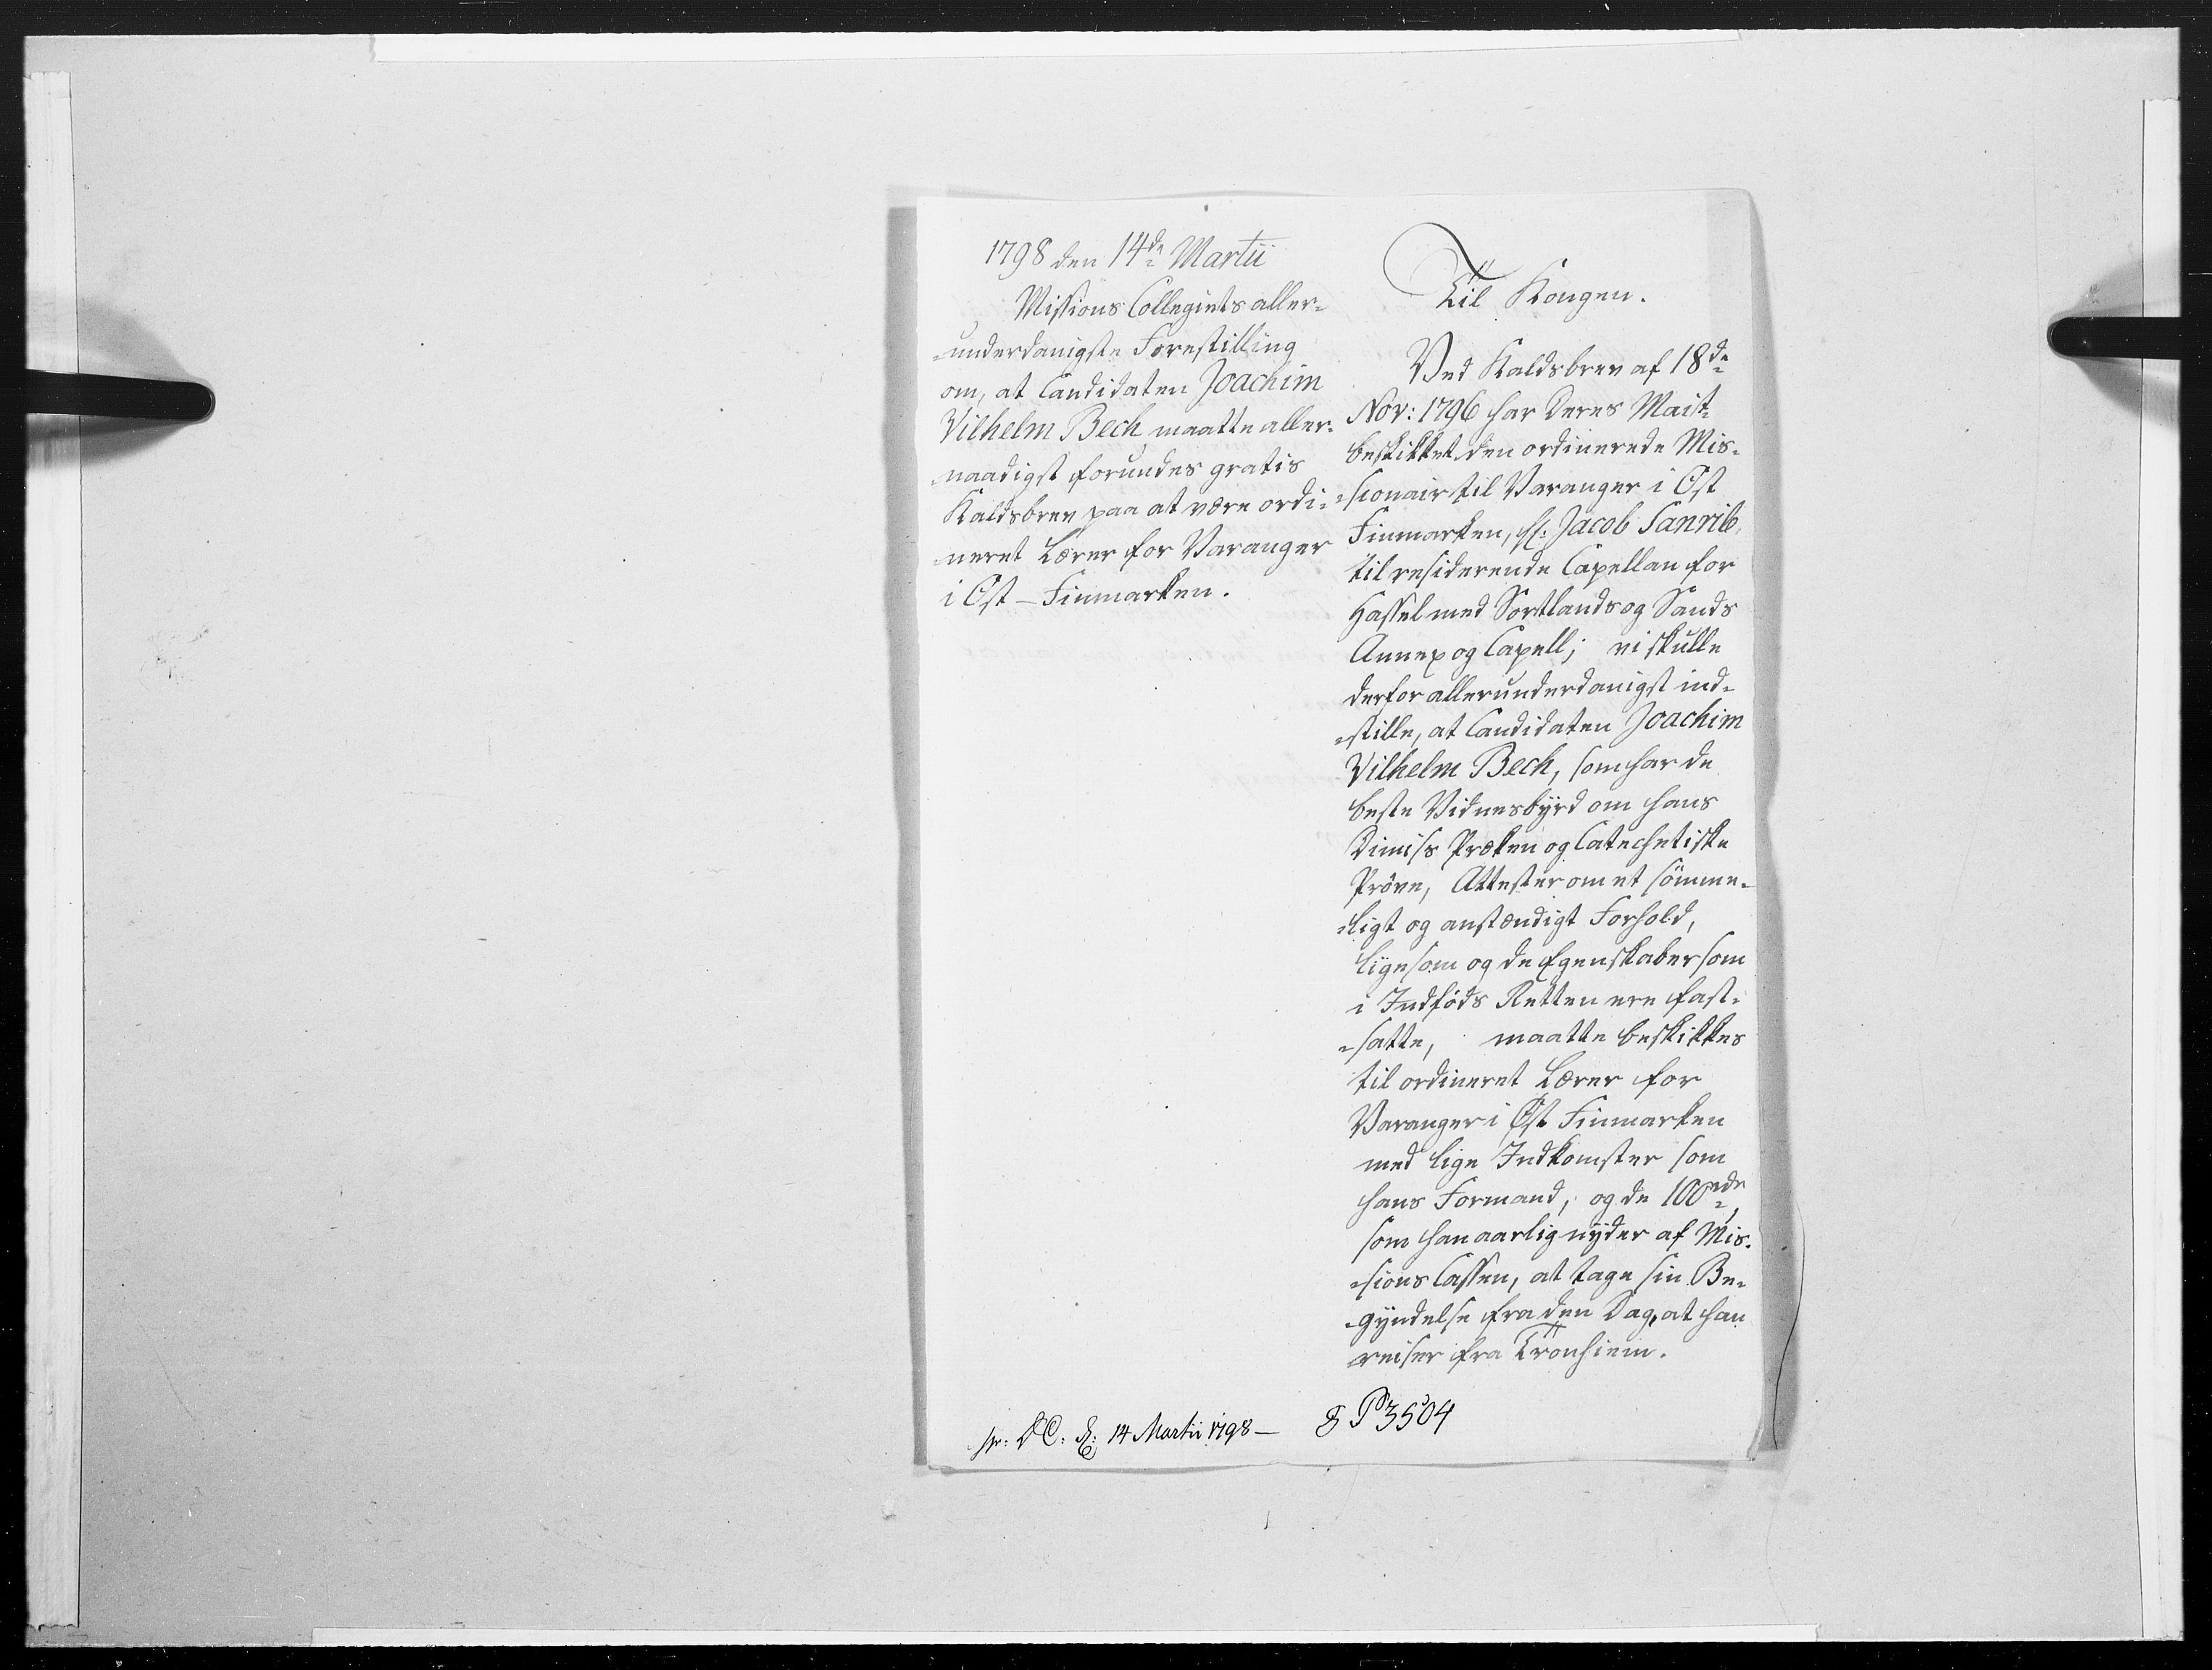 1798 den 14de Martii
Missions Collegiets aller-
underdanigste Forestilling
om, at Candidaten Joachim
Vilhelm Bech maatte aller-
naadigst forundes gratis
Kaldsbrev paa at være ordi-
neret Lærer for Varanger
i Øst-Finmarken.
Til Kongen.
Ved Kaldsbrev af 18de
Nov: 1796 har Deres Maist
beskikket den ordinerede Mis-
sionair til Varanger i Øst
Finmarken, Hr: Jacob
til residerende Capellan for
Hassel med Sortlands og Sands
Annex og Capell; vi skulle
derfor allerunderdanigst ind-
stille, at Candidaten Joachim
Vilhelm Bech, som har de
beste Vidnesbyrd om hans
Dimiss Præken og Catechetiske
Prøve, Attester om et sömme-
ligt og anstændigt Forhold,
ligesom og de Egenskaber som
i Indföds Retten ere fast-
satte, maatte beskikkes
til ordineret Lærer for
Varanger i Øst Finmarken
med lige Indkomster som
hans Formand, og de 100 rdr,
som han aarlig nyder af Mis-
sions Cassen, at tage sin Be-
gyndelse fra den Dag, at han
reiser fra Tronhiem.
pr: DC: d: 14 Martii 1798 -
P 3504